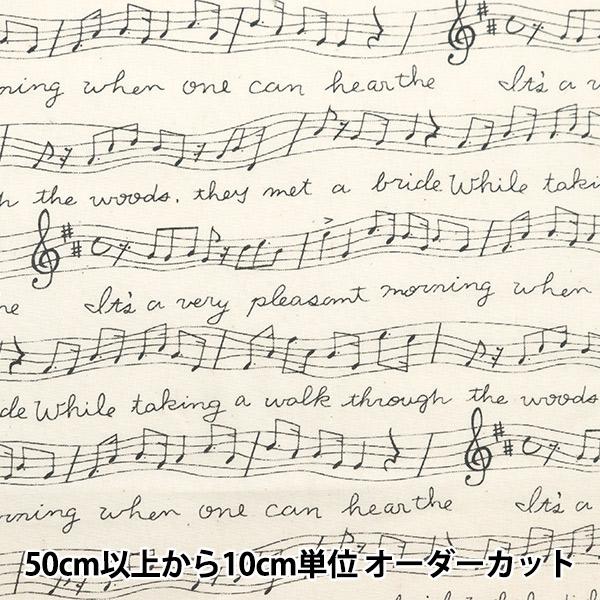 ning when one can hearthe It's a v
h the woods. they met a bride While taki
ne It's a very pleasant morning when
de While taking a walk through the woods
rning when one can hearthe It's a
50cm以上から10cm単位 オーダーカット